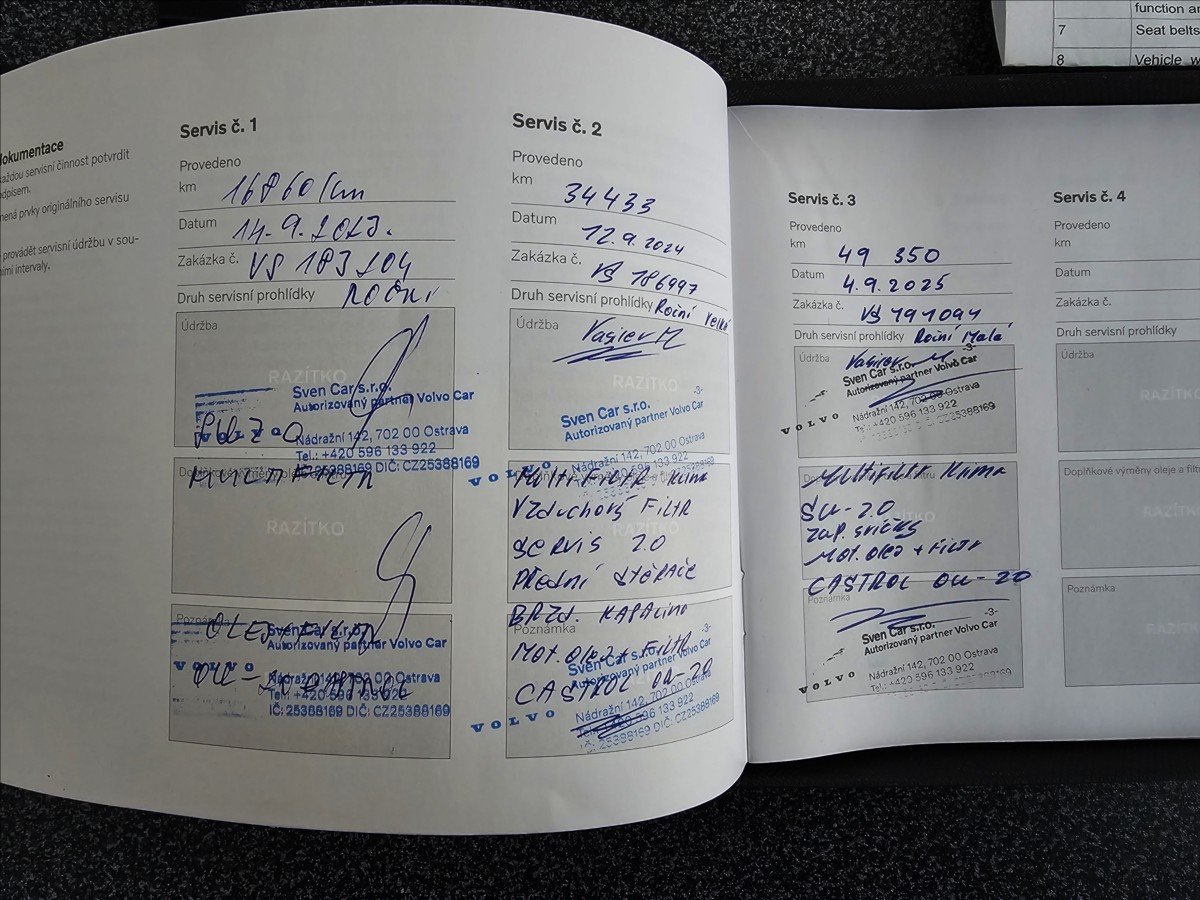 function an
7
Seat belts
8
Vehicle w
dokumentace
každou servisní činnost potvrdit
odpisem.
mená prvky originálního servisu
provádět servisní údržbu v sou-
ními intervaly.
Servis č. 1
Provedeno
km 16860 km
Datum 14.9.2023.
Zakázka č. VS 183204
Druh servisní prohlídky ROČNÍ
Údržba
RAZÍTKO
Sven Car s.r.o.
Autorizovaný partner Volvo Car
VOLVO
Nádražní 142, 702 00 Ostrava
Tel.: +420 596 133 922
IČ: 25388169 DIČ: CZ25388169
Doplňkové výměny oleje
RAZÍTKO
Poznámka
Sven Car s.r.o.
Autorizovaný partner Volvo Car
VOLVO
Nádražní 142, 702 00 Ostrava
Tel.: +420 596 133 922
IČ: 25388169 DIČ: CZ25388169
Servis č. 2
Provedeno
km 34433
Datum 12.9.2024
Zakázka č. VS 186997
Druh servisní prohlídky Roční Velká
Údržba
RAZÍTKO
-3-
Sven Car s.r.o.
Autorizovaný partner Volvo Car
VOLVO
Nádražní 142, 702 00 Ostrava
Tel.: +420 596 133 922
MultiFiltr Klima
Vzduchový Filtr
Servis 2.0
Přední stěrače
Brzd. kapalina
Poznámka
Mot. olej + Filtr
-3-
Sven Car s.r.o.
Autorizovaný partner Volvo Car
CASTROL 0W-20
VOLVO
Nádražní 142, 702 00 Ostrava
Tel.: +420 596 133 922
IČ: 25388169 DIČ: CZ25388169
Servis č. 3
Provedeno
km 49 350
Datum 4.9.2025
Zakázka č. VS 191094
Druh servisní prohlídky Roční Malá
Údržba
-3-
Sven Car s.r.o.
Autorizovaný partner Volvo Car
VOLVO
Nádražní 142, 702 00 Ostrava
Tel.: +420 596 133 922
Multifiltr Klima
SW-2.0
Zap. svíčky
Mot. olej + Filtr
CASTROL 0W-20
Poznámka
-3-
Sven Car s.r.o.
Autorizovaný partner Volvo Car
VOLVO
Nádražní 142, 702 00 Ostrava
Tel.: +420 596 133 922
Servis č. 4
Provedeno
km
Datum
Zakázka č.
Druh servisní prohlídky
Údržba
RAZÍTKO
Doplňkové výměny oleje a filtru
RAZÍTKO
Poznámka
RAZÍTKO